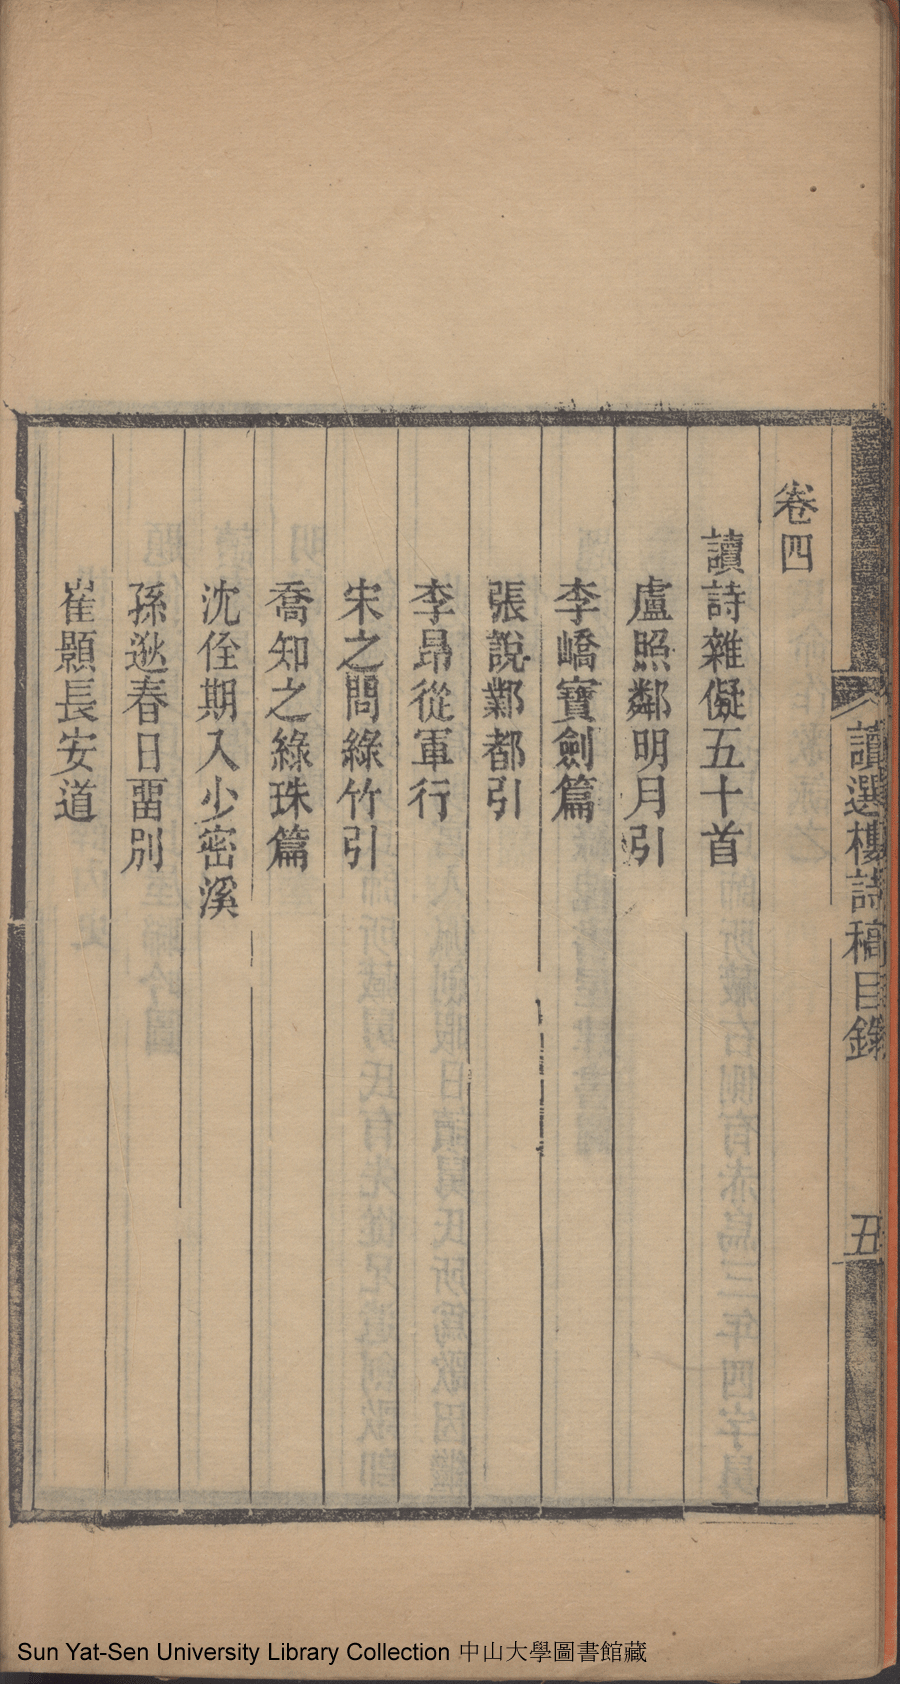 讀選樓詩稿目錄
五
卷四
讀詩雜儗五十首
盧照鄰明月引
李嶠寶劍篇
張說鄴都引
李昂從軍行
宋之問綠竹引
喬知之綠珠篇
沈佺期入少密溪
孫逖春日畱別
崔顥長安道
Sun Yat-Sen University Library Collection 中山大學圖書館藏